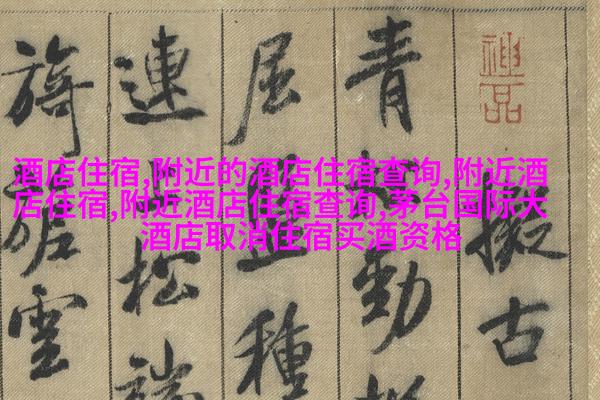 酒店住宿,附近的酒店住宿查询,附近酒
店住宿,附近酒店住宿查询,茅台国际大
酒店取消住宿买酒资格
神品
擬古
青松勁挺
屈盤種
連上松端
旖旎雲